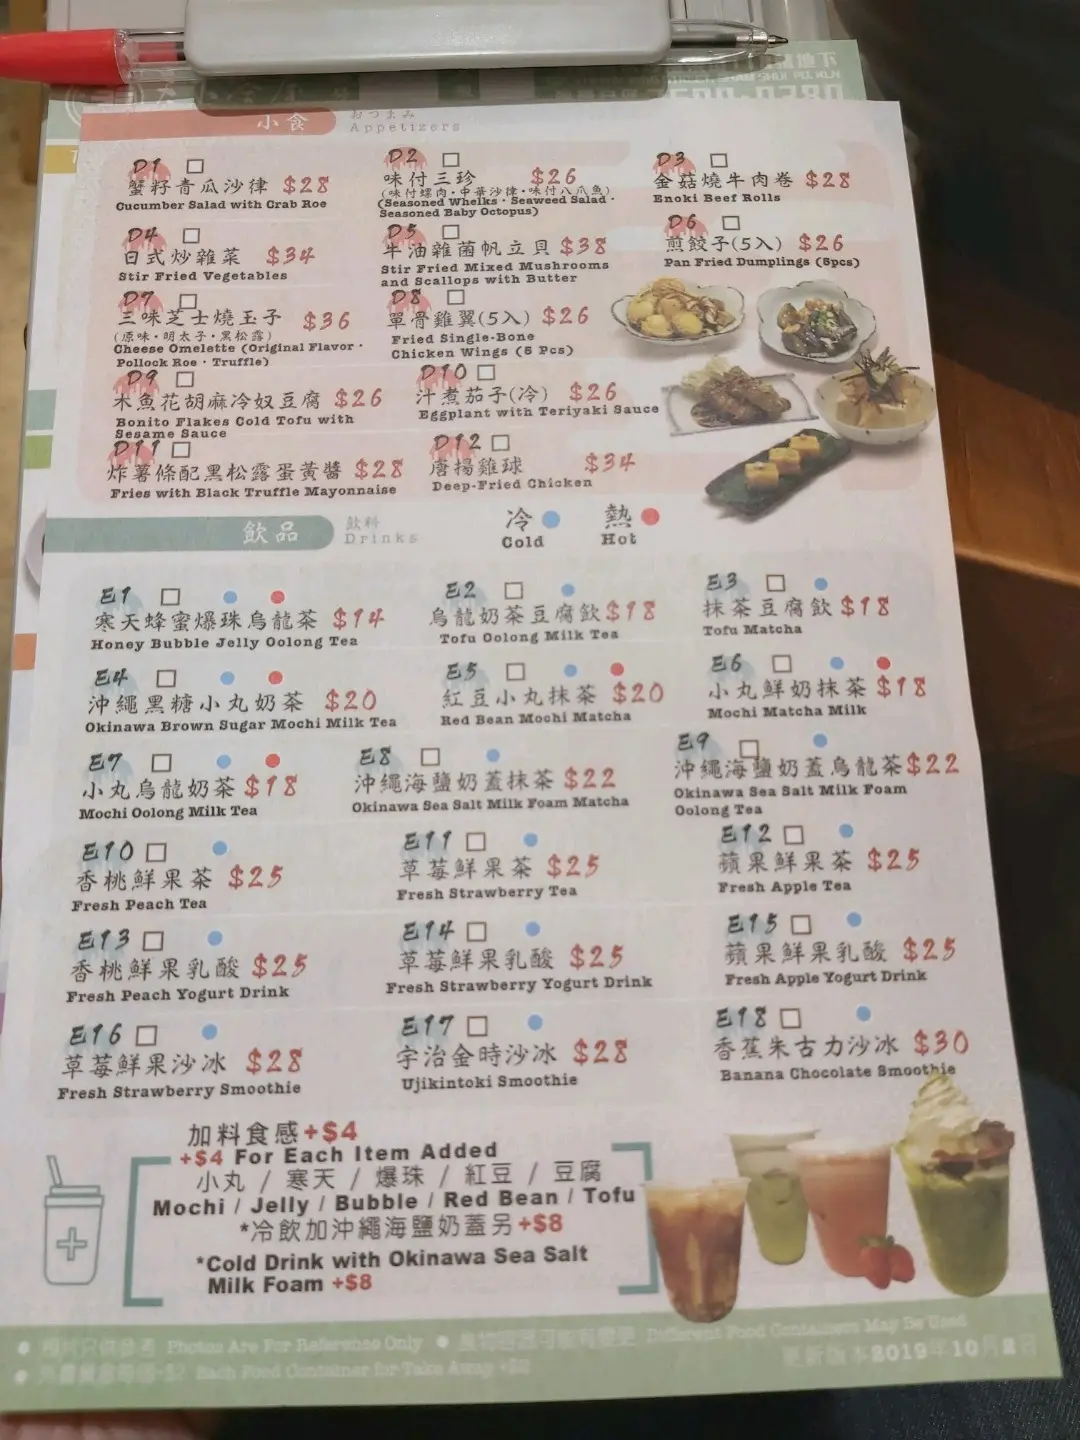 小食 おつまみ
Appetizers
D1
蟹籽青瓜沙律 $28
Cucumber Salad with Crab Roe
D2
味付三珍 $26
(味付螺肉・中華沙律・味付八爪魚)
(Seasoned Whelks・Seaweed Salad・
Seasoned Baby Octopus)
D3
金菇燒牛肉卷 $28
Enoki Beef Rolls
D4
日式炒雜菜 $34
Stir Fried Vegetables
D5
牛油雜菌帆立貝 $38
Stir Fried Mixed Mushrooms
and Scallops with Butter
D6
煎餃子(5入) $26
Pan Fried Dumplings (5pcs)
D7
三味芝士燒玉子 $36
(原味・明太子・黑松露)
Cheese Omelette (Original Flavor・
Pollock Roe・Truffle)
D8
單骨雞翼(5入) $26
Fried Single-Bone
Chicken Wings (5 Pcs)
D9
木魚花胡麻冷奴豆腐 $26
Bonito Flakes Cold Tofu with
Sesame Sauce
D10
汁煮茄子(冷) $26
Eggplant with Teriyaki Sauce
D11
炸薯條配黑松露蛋黃醬 $28
Fries with Black Truffle Mayonnaise
D12
唐揚雞球 $34
Deep-Fried Chicken
飲品 飲料
Drinks
冷 熱
Cold Hot
E1
寒天蜂蜜爆珠烏龍茶 $14
Honey Bubble Jelly Oolong Tea
E2
烏龍奶茶豆腐飲 $18
Tofu Oolong Milk Tea
E3
抹茶豆腐飲 $18
Tofu Matcha
E4
沖繩黑糖小丸奶茶 $20
Okinawa Brown Sugar Mochi Milk Tea
E5
紅豆小丸抹茶 $20
Red Bean Mochi Matcha
E6
小丸鮮奶抹茶 $18
Mochi Matcha Milk
E7
小丸烏龍奶茶 $18
Mochi Oolong Milk Tea
E8
沖繩海鹽奶蓋抹茶 $22
Okinawa Sea Salt Milk Foam Matcha
E9
沖繩海鹽奶蓋烏龍茶 $22
Okinawa Sea Salt Milk Foam
Oolong Tea
E10
香桃鮮果茶 $25
Fresh Peach Tea
E11
草莓鮮果茶 $25
Fresh Strawberry Tea
E12
蘋果鮮果茶 $25
Fresh Apple Tea
E13
香桃鮮果乳酸 $25
Fresh Peach Yogurt Drink
E14
草莓鮮果乳酸 $25
Fresh Strawberry Yogurt Drink
E15
蘋果鮮果乳酸 $25
Fresh Apple Yogurt Drink
E16
草莓鮮果沙冰 $28
Fresh Strawberry Smoothie
E17
宇治金時沙冰 $28
Ujikintoki Smoothie
E18
香蕉朱古力沙冰 $30
Banana Chocolate Smoothie
加料食感+$4
+$4 For Each Item Added
小丸 / 寒天 / 爆珠 / 紅豆 / 豆腐
Mochi / Jelly / Bubble / Red Bean / Tofu
*冷飲加沖繩海鹽奶蓋另+$8
*Cold Drink with Okinawa Sea Salt
Milk Foam +$8
Photos Are For Reference Only ● 食物容器可能有變更 Different Food Containers May Be Used
Each Food Container for Take Away +$2
更新版本2019年10月2日